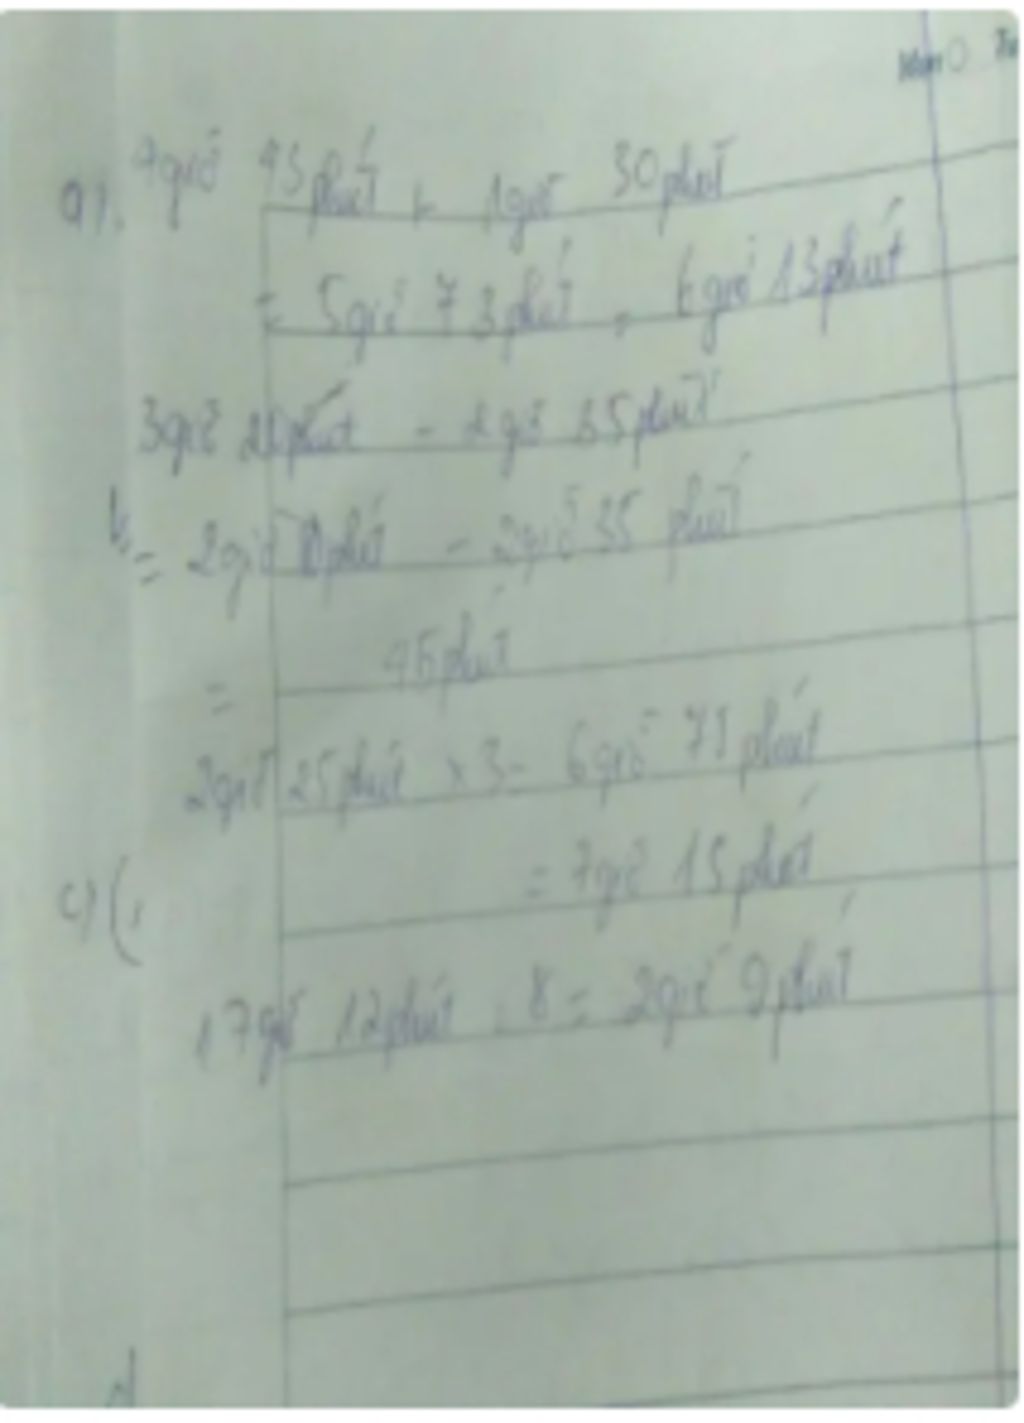 a). 4giờ 43phút + 1giờ 30phút
= 5giờ 73phút = 6giờ 13phút
3giờ phút - 2giờ 35phút
b, = 2giờ phút - 2giờ 35 phút
= 45phút
2giờ 25phút x 3 = 6giờ 75 phút
c) = 7giờ 15 phút
17giờ 12phút : 8 = 2giờ 9phút
d